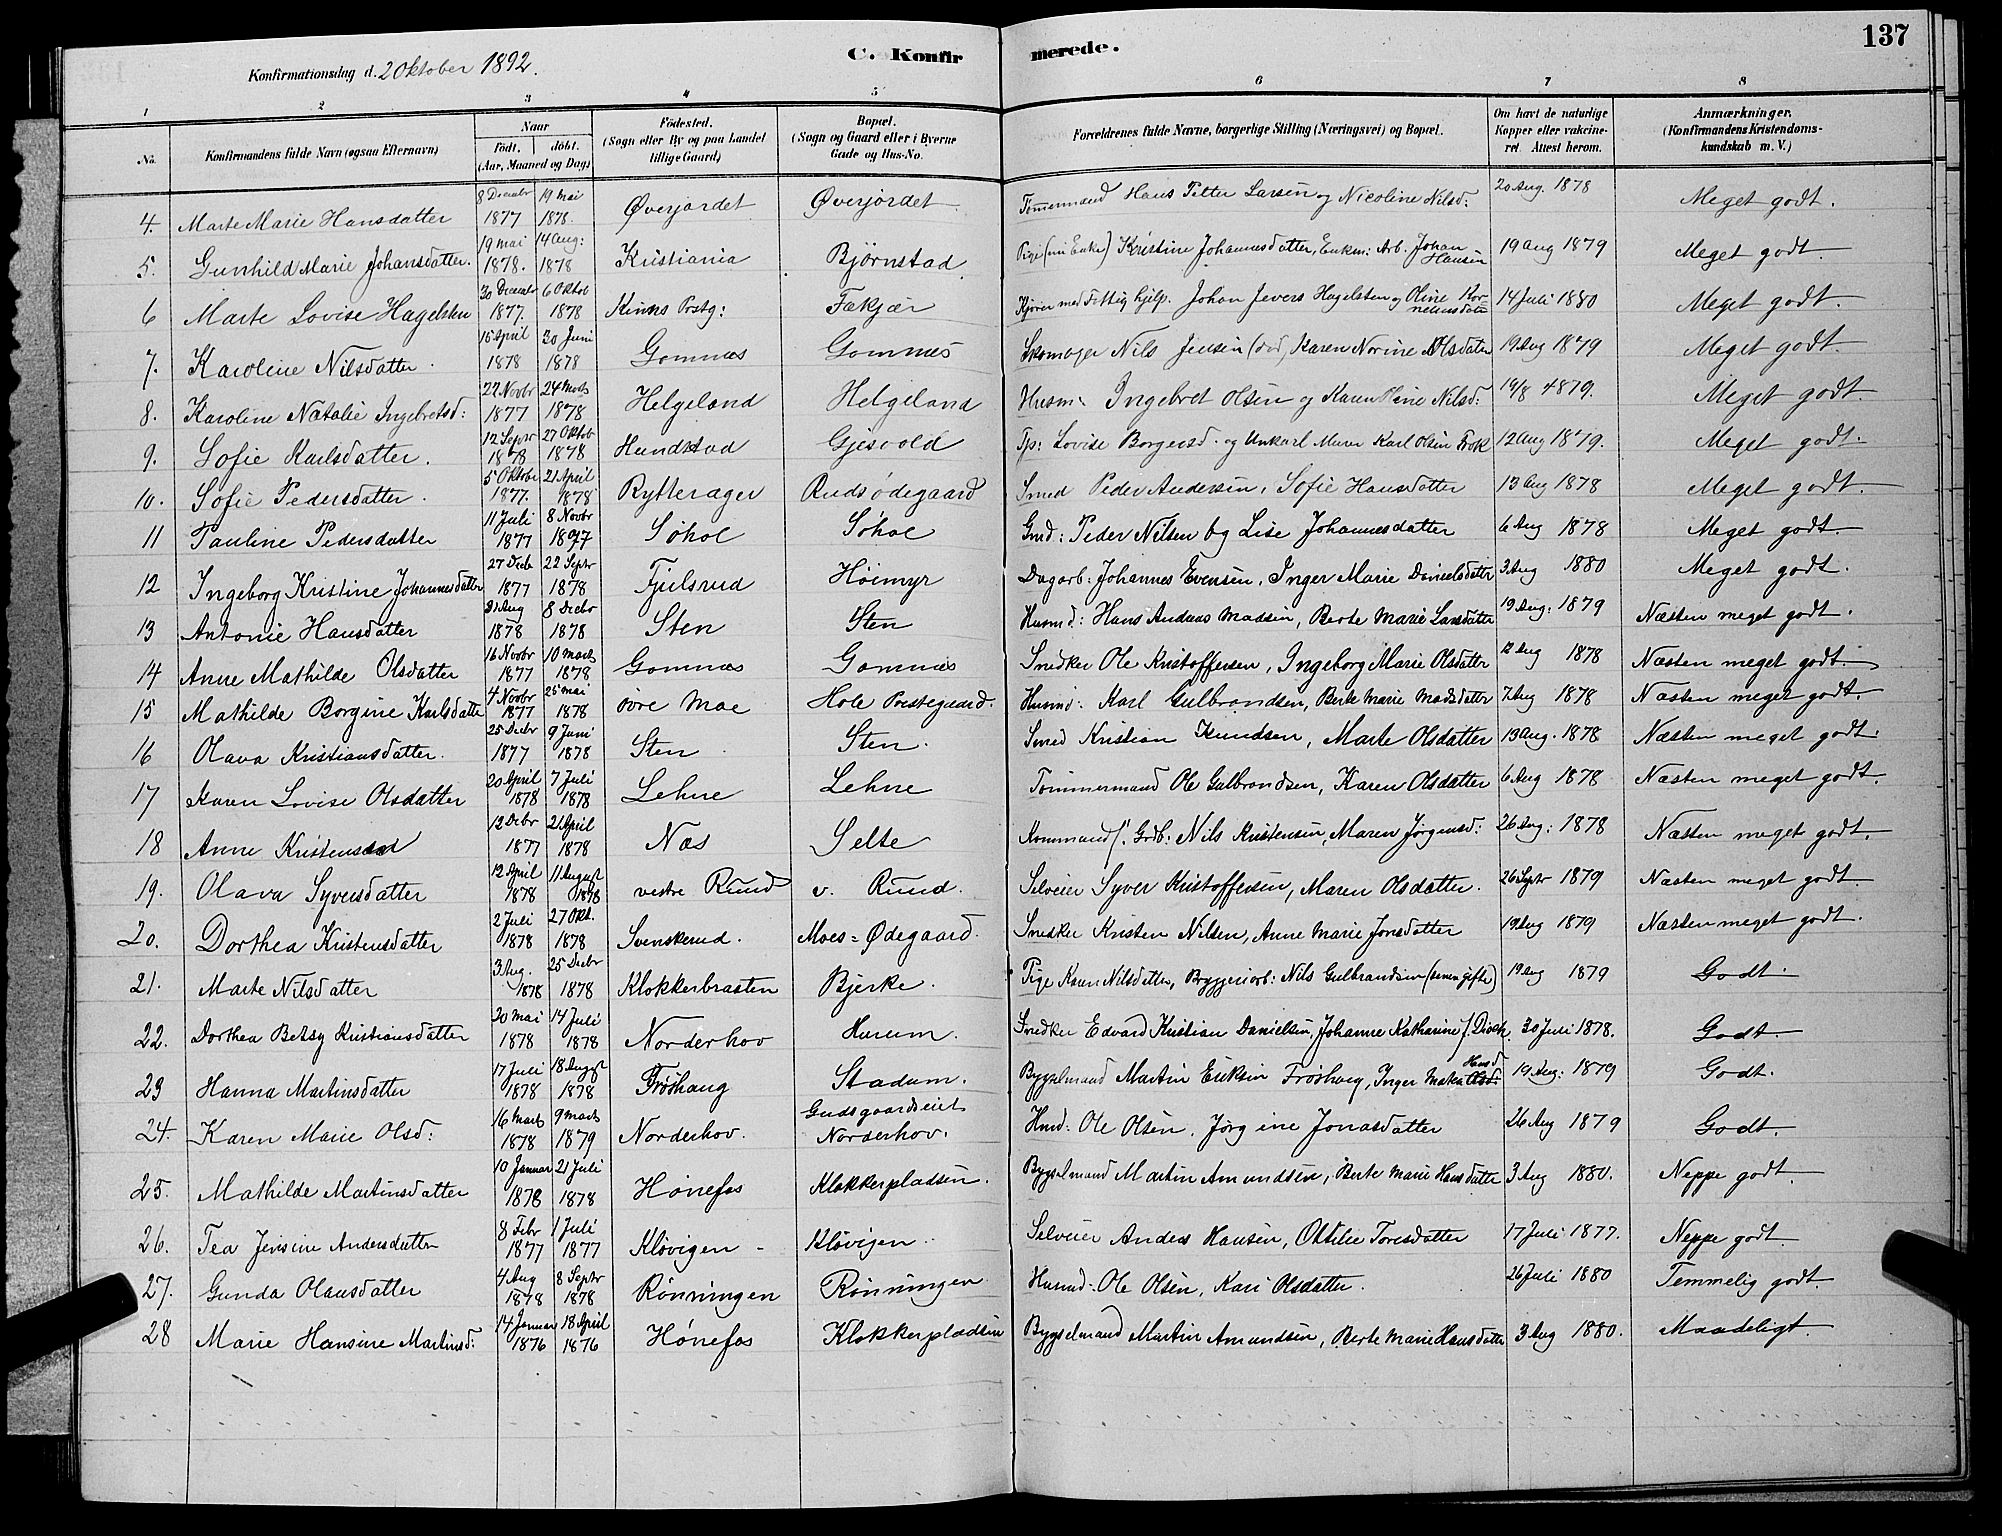 137
Konfirmationsdag d. 2 Oktober 1892.
C. Konfir merede.
1 2 3 4 5 6 7 8
No.
Konfirmandens fulde Navn (ogsaa Efternavn)
Naar
födt. döbt.
(Aar, Maaned og Dag)
Födested.
(Sogn eller By og paa Landet
tillige Gaard)
Bopæl.
(Sogn og Gaard eller i Byerne
Gade og Hus-No.
Forældrenes fulde Navne, borgerlige Stilling (Næringsvei) og Bopæl.
Om havt de naturlige
Kopper eller vakcine-
ret. Attest herom.
Anmærkninger.
(Konfirmandens Kristendoms-
kundskab m. V.)
4. Marte Marie Hansdatter 8 Decembr 1877 19 Mai 1878. Øverjordet Øverjordet Tømermand Hans Petter Larsen og Nicoline Nilsd: 20 Aug. 1878 Meget godt.
5. Gunhild Marie Johansdatter. 19 mai 1878. 14 Aug: 1878 Kristiania Björnstad Pige (nu Enke) Kristine Johannesdatter, Enkem: Arb. Johan Hansen 19 Aug 1879 Meget godt.
6 Marte Lovise Hagelsten 30 Decembr 1877. 6 Oktob 1878 Kinns Prstg: Fækjær med Fattighjelp. Johan Jevers Hagelsten og Oline Kornelius datter 14 Juli 1880 Meget godt.
7. Karoline Nilsdatter. 15 April 1878 30 Juni 1878 Gomnæs Gomnes Skomager Nils Jensen (død) Karen Norine Olsdatter 19 Aug 1879 Meget godt.
8. Karoline Natalie Ingebretsd: 22 Novbr 1877 24 Marts 1878 Helgeland Helgeland Husm. Ingebret Olsen og Karen Oline Nilsd: 19/8 1879. Meget godt.
9. Sofie Karlsdatter. 12 Septr 1878 27 Oktob 1878 Hundstad Gjesvold Tjs: Lovise Borgersd. og Unkarl Murer Karl Olsen Frok 12 Aug 1879. Meget godt.
10. Sofie Pedersdatter. 5 Oktobr 1877. 21 April 1878 Rytterager Rudsødegaard Smed Peder Andersen, Sofie Hansdatter 13 Aug 1878 Meget godt.
11 Pauline Pedersdatter 11 Juli 1877 8 Novbr 1877 Søhol Søhol Gmd: Peder Nilsen og Lise Johannesdatter 6 Aug 1878 Meget godt.
12 Ingeborg Kristine Johannesdatter 27 Decb 1877 22 Septr 1878 Tjulsrud Høimyr Dagarb: Johannes Evensen, Inger Marie Danielsdatter 3 Aug 1880 Meget godt.
13 Antonie Hansdatter 31 Aug 1878 8 Decbr 1878 Sten Sten Husmd: Hans Andreas Madsen, Berte Marie Larsdatter 19 Aug: 1879 Næsten meget godt.
14 Anne Mathilde Olsdatter 16 Novbr 1877 10 marts 1878 Gomnæs Gomnæs Snedker Ole Kristoffersen, Ingeborg Marie Olsdatter 12 Aug 1878 Næsten meget godt.
15 Mathilde Borgine Karlsdatter 4 Novbr 1877 25 mai 1878 øvre Moe Hole Prestegaard. Husmd: Karl Gulbrandsen, Berte Marie Madsdatter 7 Aug 1878 Næsten meget godt.
16 Olava Kristiansdatter. 25 Decbr 1877 9 Juni 1878 Sten Sten. Smed Kristian Knudsen, Marte Olsdatter 13 Aug. 1878 Næsten meget godt.
17 Karen Lovise Olsdatter 20 April 1878 7 Juli 1878 Lehne Lehne Tömmermand Ole Gulbrandsen, Karen Olsdatter 6 Aug 1878 Næsten meget godt.
18 Anne Kristensd 12 Decbr 1877 21 April 1878 Næs Selte Nils Kristensen, Maren Jørgensd: 26 Aug: 1878 Næsten meget godt.
19. Olava Syversdatter 12 April 1878 11 August 1878 vestre Ruud v. Ruud. Selveier Syver Kristoffersen, Maren Olsdatter. 26 Septr 1879 Næsten meget godt.
20. Dorthea Kristensdatter 2 Juli 1878 27 Okt. 1878 Svenskerud. Moes=Ødegaard. Snedker Kristen Nilsen, Anne Marie Jonsdatter 19 Aug 1879 Næsten meget godt.
21. Marte Nilsdatter 3 Aug. 1878 25 Decbr 1878 Klokkerbraaten Bjerke. Pige Karen Nilsdatter, Bryggeriarb: Nils Gulbrandsen (senere gifte) 19 Aug 1879 Godt.
22. Dorthea Betsy Kristiansdatter 20 Mai 1878 14 Juli 1878 Norderhov Harum. Snedker Edvard Kristian Danielsen, Johanne Katharine f. Dioch. 30 Juli 1878. Godt.
23 Hanna Martinsdatter 17 Juli 1878 18 August 1878 Frøshaug Stadum. Bygselmand Martin Eriksen Frøshoug, Inger Maria Hansd Olsd: 19 Aug: 1879 Godt.
24. Karen Marie Olsd: 16 Marts 1878 9 marts 1879 Norderhov. Gudsgaardseiet Norderhov. Hmd: Ole Olsen, Jørgine Jonasdatter 26 Aug 1879 Godt.
25. Mathilde Martinsdatter 10 Januar 1878 21 Juli 1878 Hönefos Klokkerpladsen. Bygselmand Martin Amundsen, Berte Marie Hansdatter 3 Aug 1880. Neppe godt.
26. Tea Jensine Andersdatter 8 Febr 1877 1 Juli 1877 Kløvigen - Kløvigen Selveier Anders Hansen, Ottilie Toresdatter 17 Juli 1877. Neppe godt.
27. Gunda Olausdatter 4 Aug 1878 8 Septr 1878 Rönningen Rönningen Husmd: Ole Olsen, Kari Olsdatter. 26 Juli 1880 Temmelig godt
28 Marie Hansine Martinsd: 14 Januar 1876 18 April 1876 Hönefos Klokkerpladsen Bygselmand Martin Amundsen, Berte Marie Hansdatter 3 Aug 1880. Maadeligt.